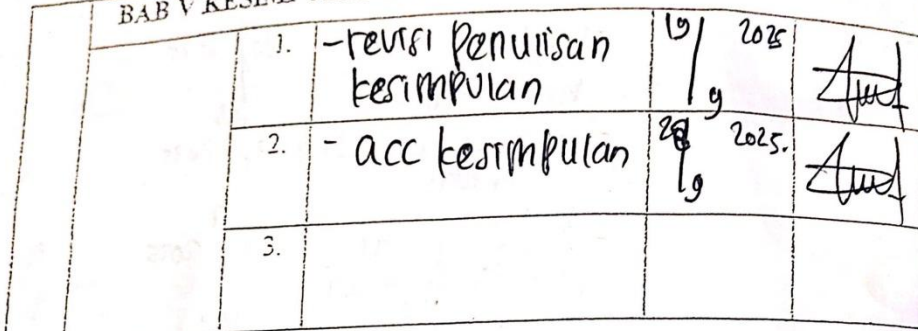 BAB V
1. -revisi Penulisan kesimpulan 19/9 2025
2. - acc kesimpulan /9 2025.
3.